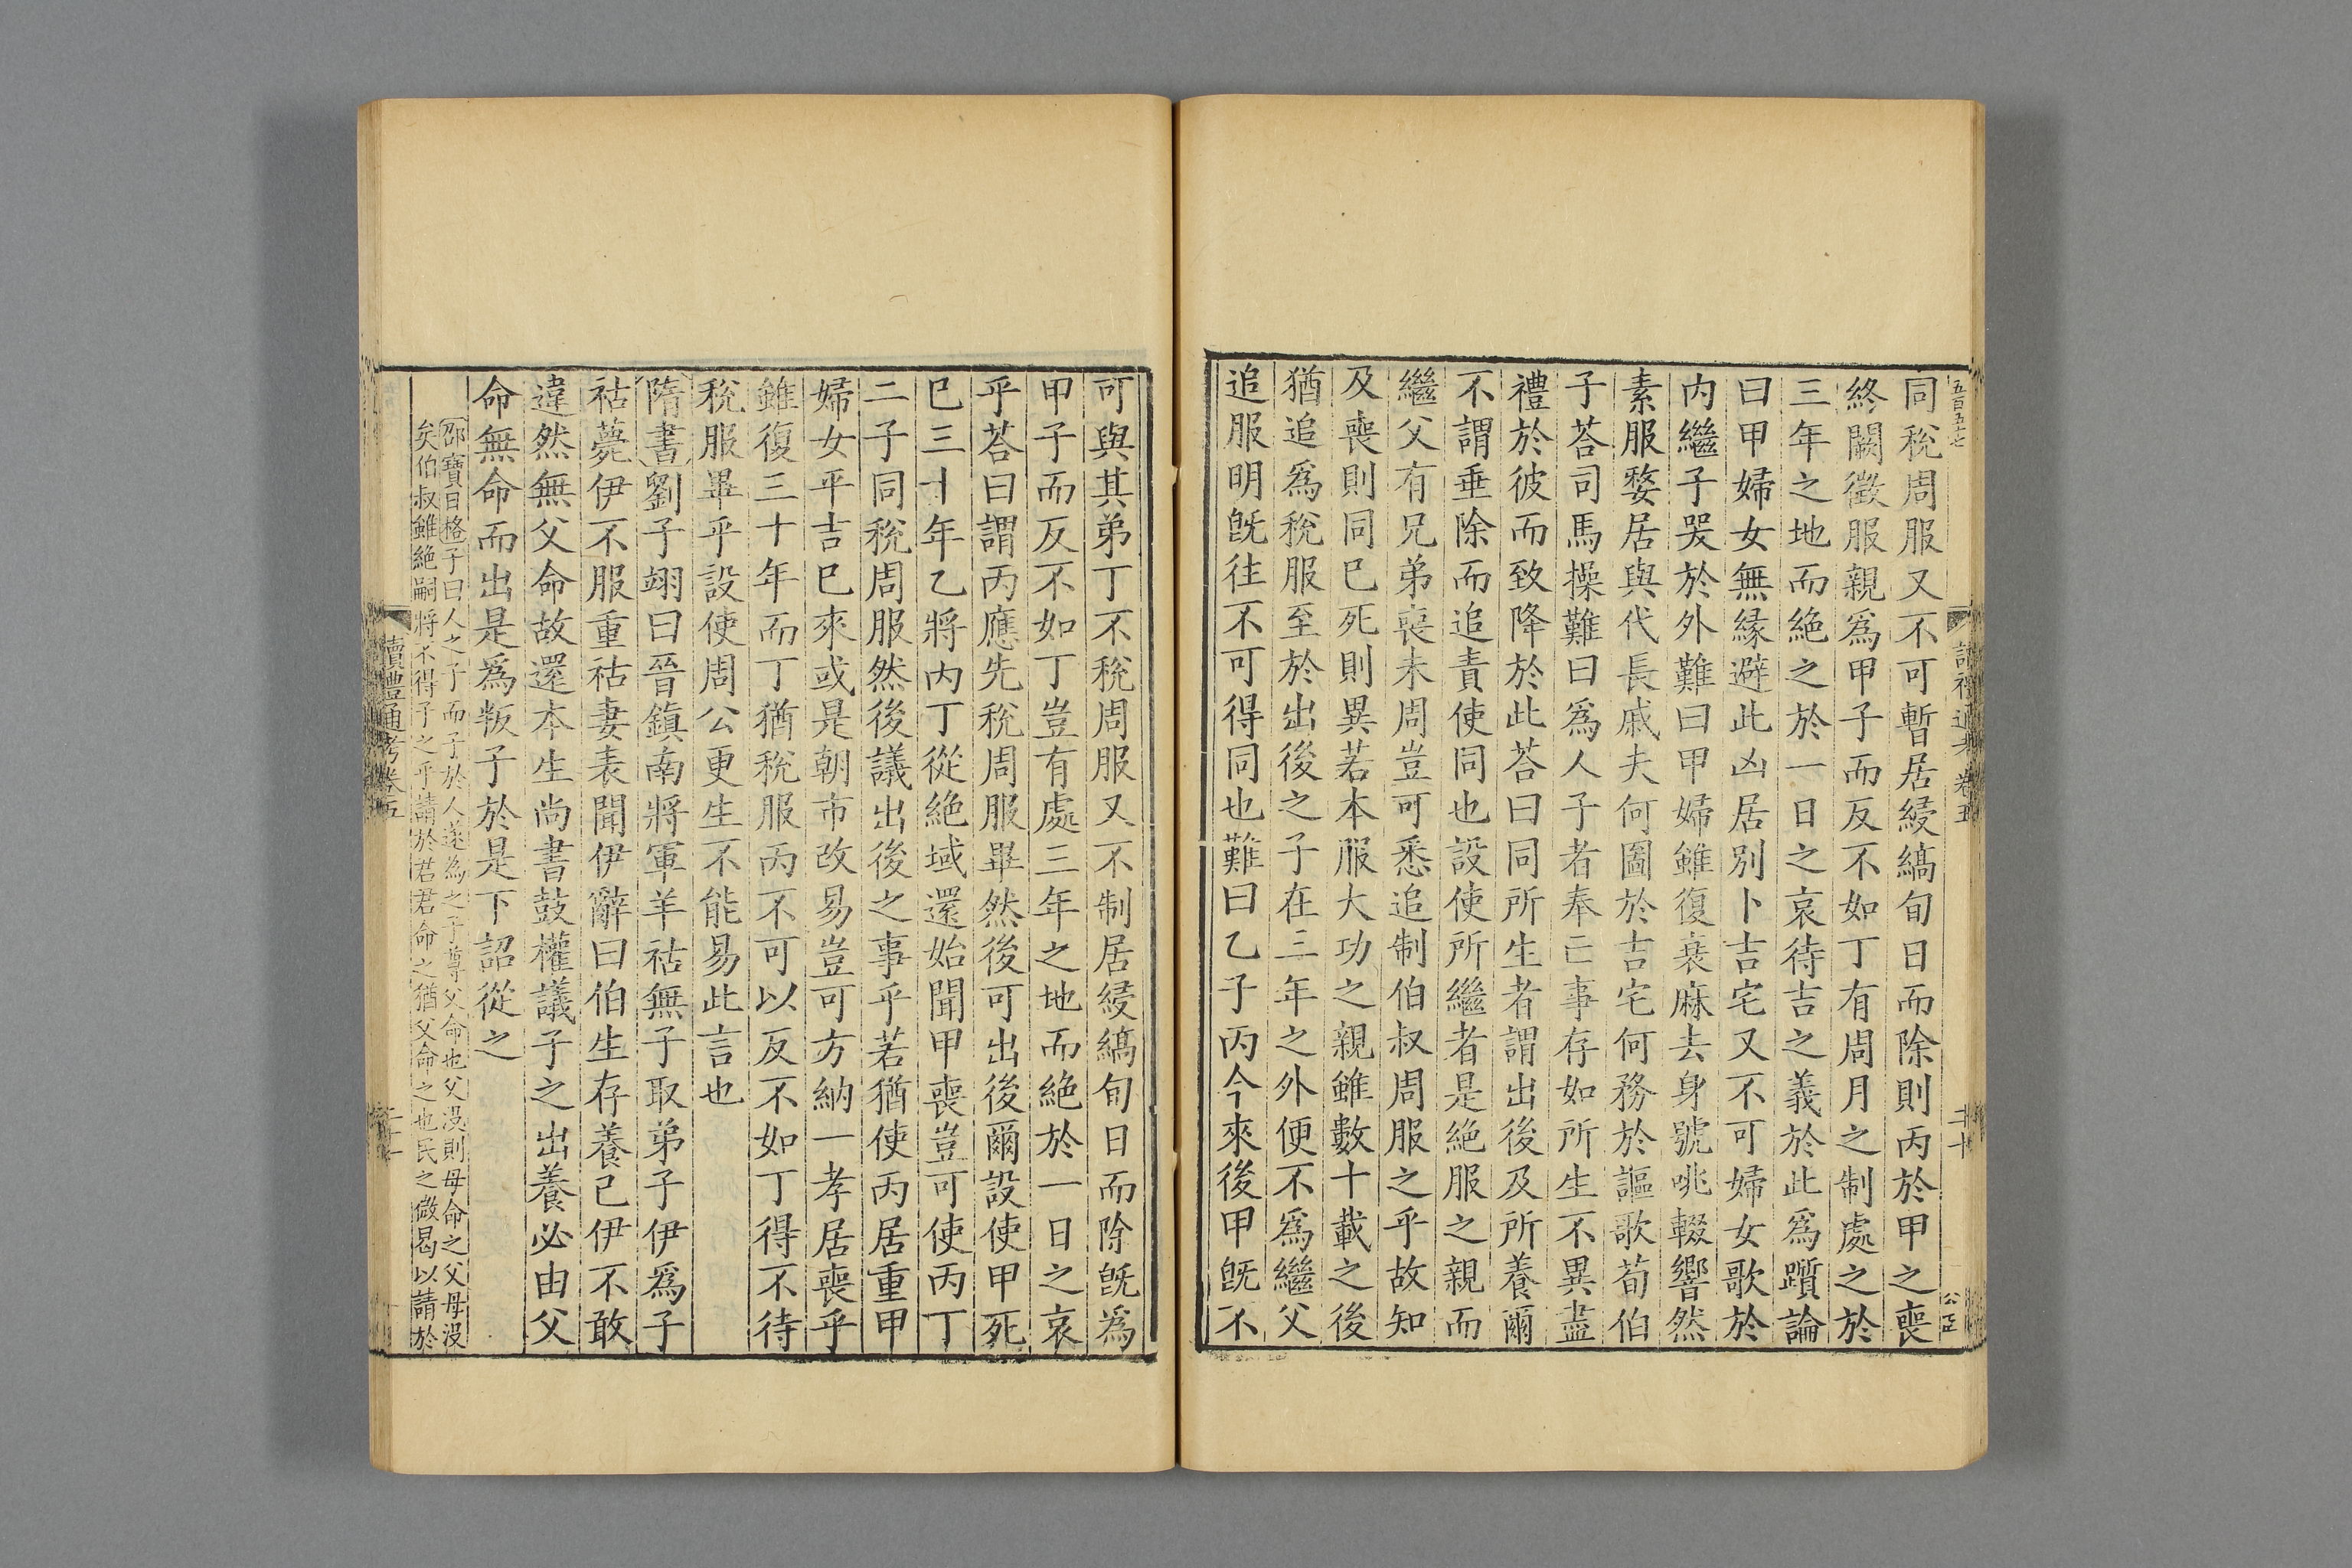 五百五十七
讀禮通考卷五
二十
公正
同稅周服又不可暫居縗縞旬日而除則丙於甲之喪
終闕徵服親爲甲子而反不如丁有周月之制處之於
三年之地而絶之於一日之哀待吉之義於此爲躓論
曰甲婦女無緣避此凶居別卜吉宅又不可婦女歌於
内繼子哭於外難曰甲婦雖復衰麻去身號咷輟響然
素服婺居與代長戚夫何圖於吉宅何務於謳歌荀伯
子荅司馬操難曰爲人子者奉亡事存如所生不異盡
禮於彼而致降於此荅曰同所生者謂出後及所養爾
不謂垂除而追責使同也設使所繼者是絶服之親而
繼父有兄弟喪未周豈可悉追制伯叔周服之乎故知
及喪則同已死則異若本服大功之親雖數十載之後
猶追爲稅服至於出後之子在三年之外便不爲繼父
追服明旣往不可得同也難曰乙子丙今來後甲旣不
可與其弟丁不稅周服又不制居縗縞旬日而除旣爲
甲子而反不如丁豈有處三年之地而絶於一日之哀
乎荅曰謂丙應先稅周服畢然後可出後爾設使甲死
巳三十年乙將丙丁從絶域還始聞甲喪豈可使丙丁
二子同稅周服然後議出後之事乎若猶使丙居重甲
婦女平吉巳來或是朝市改易豈可方納一孝居喪乎
雖復三十年而丁猶稅服丙不可以反不如丁得不待
稅服畢乎設使周公更生不能易此言也
隋書劉子翊曰晉鎮南將軍羊祜無子取弟子伊爲子
祜薨伊不服重祜妻表聞伊辭曰伯生存養己伊不敢
違然無父命故還本生尚書鼓權議子之出養必由父
命無命而出是爲叛子於是下詔從之
邵寶曰格子曰人之子而子於人遂爲之子尊父命也父沒則母命之父母沒
矣伯叔雖絶嗣將不得子之乎請於君君命之猶父命之也民之微曷以請於
讀禮通考卷五